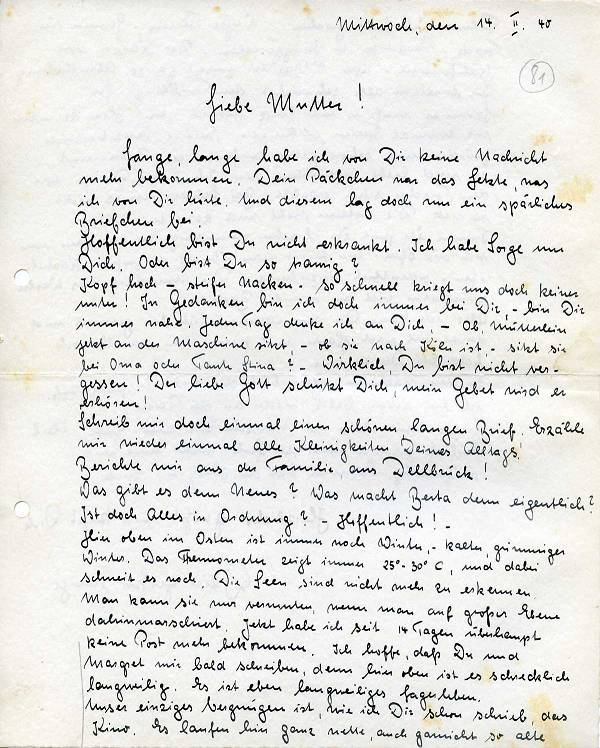 Mittwoch, den 14. II. 40
81
Liebe Mutter!
Lange, lange habe ich von Dir keine Nachricht
mehr bekommen. Dein Päckchen war das Letzte, was
ich von Dir hörte. Und diesem lag doch nur ein spärliches
Briefchen bei.
Hoffentlich bist Du nicht erkrankt. Ich habe Sorge um
Dich. Oder bist Du so traurig?
Kopf hoch – steifer Nacken – so schnell kriegt uns doch keiner
unter! In Gedanken bin ich doch immer bei Dir, – bin Dir
immer nahe. Jeden Tag denke ich an Dich, – Ob Mütterlein
jetzt an der Maschine sitzt, – ob sie nach Köln ist, – sitzt sie
bei Oma oder Tante Stina? – Wirklich, Du bist nicht ver-
gessen! Der liebe Gott schützt Dich, mein Gebet wird er
erhören!
Schreib mir doch einmal einen schönen langen Brief. Erzähle
mir wieder einmal alle Kleinigkeiten Deines Alltags!
Berichte mir aus der Familie, aus Dellbrück!
Was gibt es denn Neues? Was macht Berta denn eigentlich?
Ist doch Alles in Ordnung? – Hoffentlich! –
Hier oben im Osten ist immer noch Winter, – kalter, grimmiger
Winter. Das Thermometer zeigt immer 25°-30° C, und dabei
schneit es noch. Die Seen sind nicht mehr zu erkennen.
Man kann sie nur vermuten, wenn man auf großer Ebene
dahinmarschiert. Jetzt habe ich seit 14 Tagen überhaupt
keine Post mehr bekommen. Ich hoffe, daß Du und
Margret mir bald schreiben, denn hier oben ist es schrecklich
langweilig. Es ist eben langweiliges Lagerleben.
Unser einziges Vergnügen ist, wie ich Dir schon schrieb, das
Kino. Es laufen hier ganz nette, auch garnicht so alte